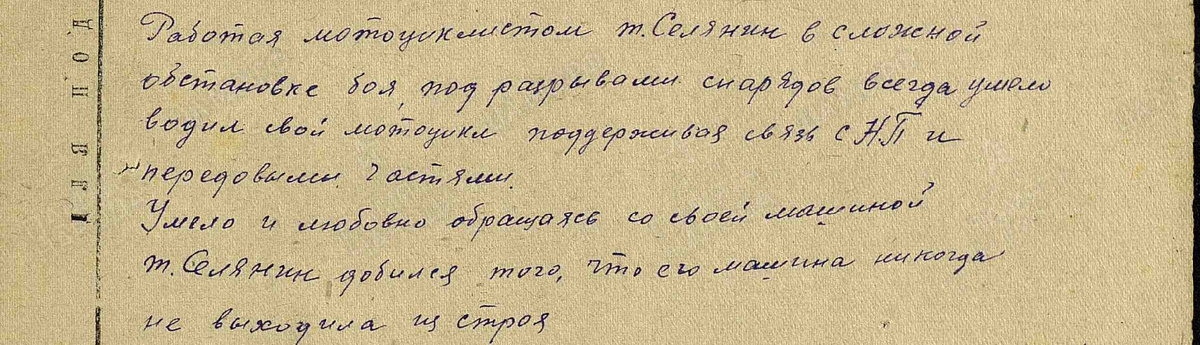 Работая мотоциклистом т. Селянин в сложной
обстановке боя, под разрывами снарядов всегда умело
водил свой мотоцикл поддерживая связь с НП и
передовыми частями.
Умело и любовно обращаясь со своей машиной
т. Селянин добился того, что его машина никогда
не выходила из строя
ДЛЯ ПОД